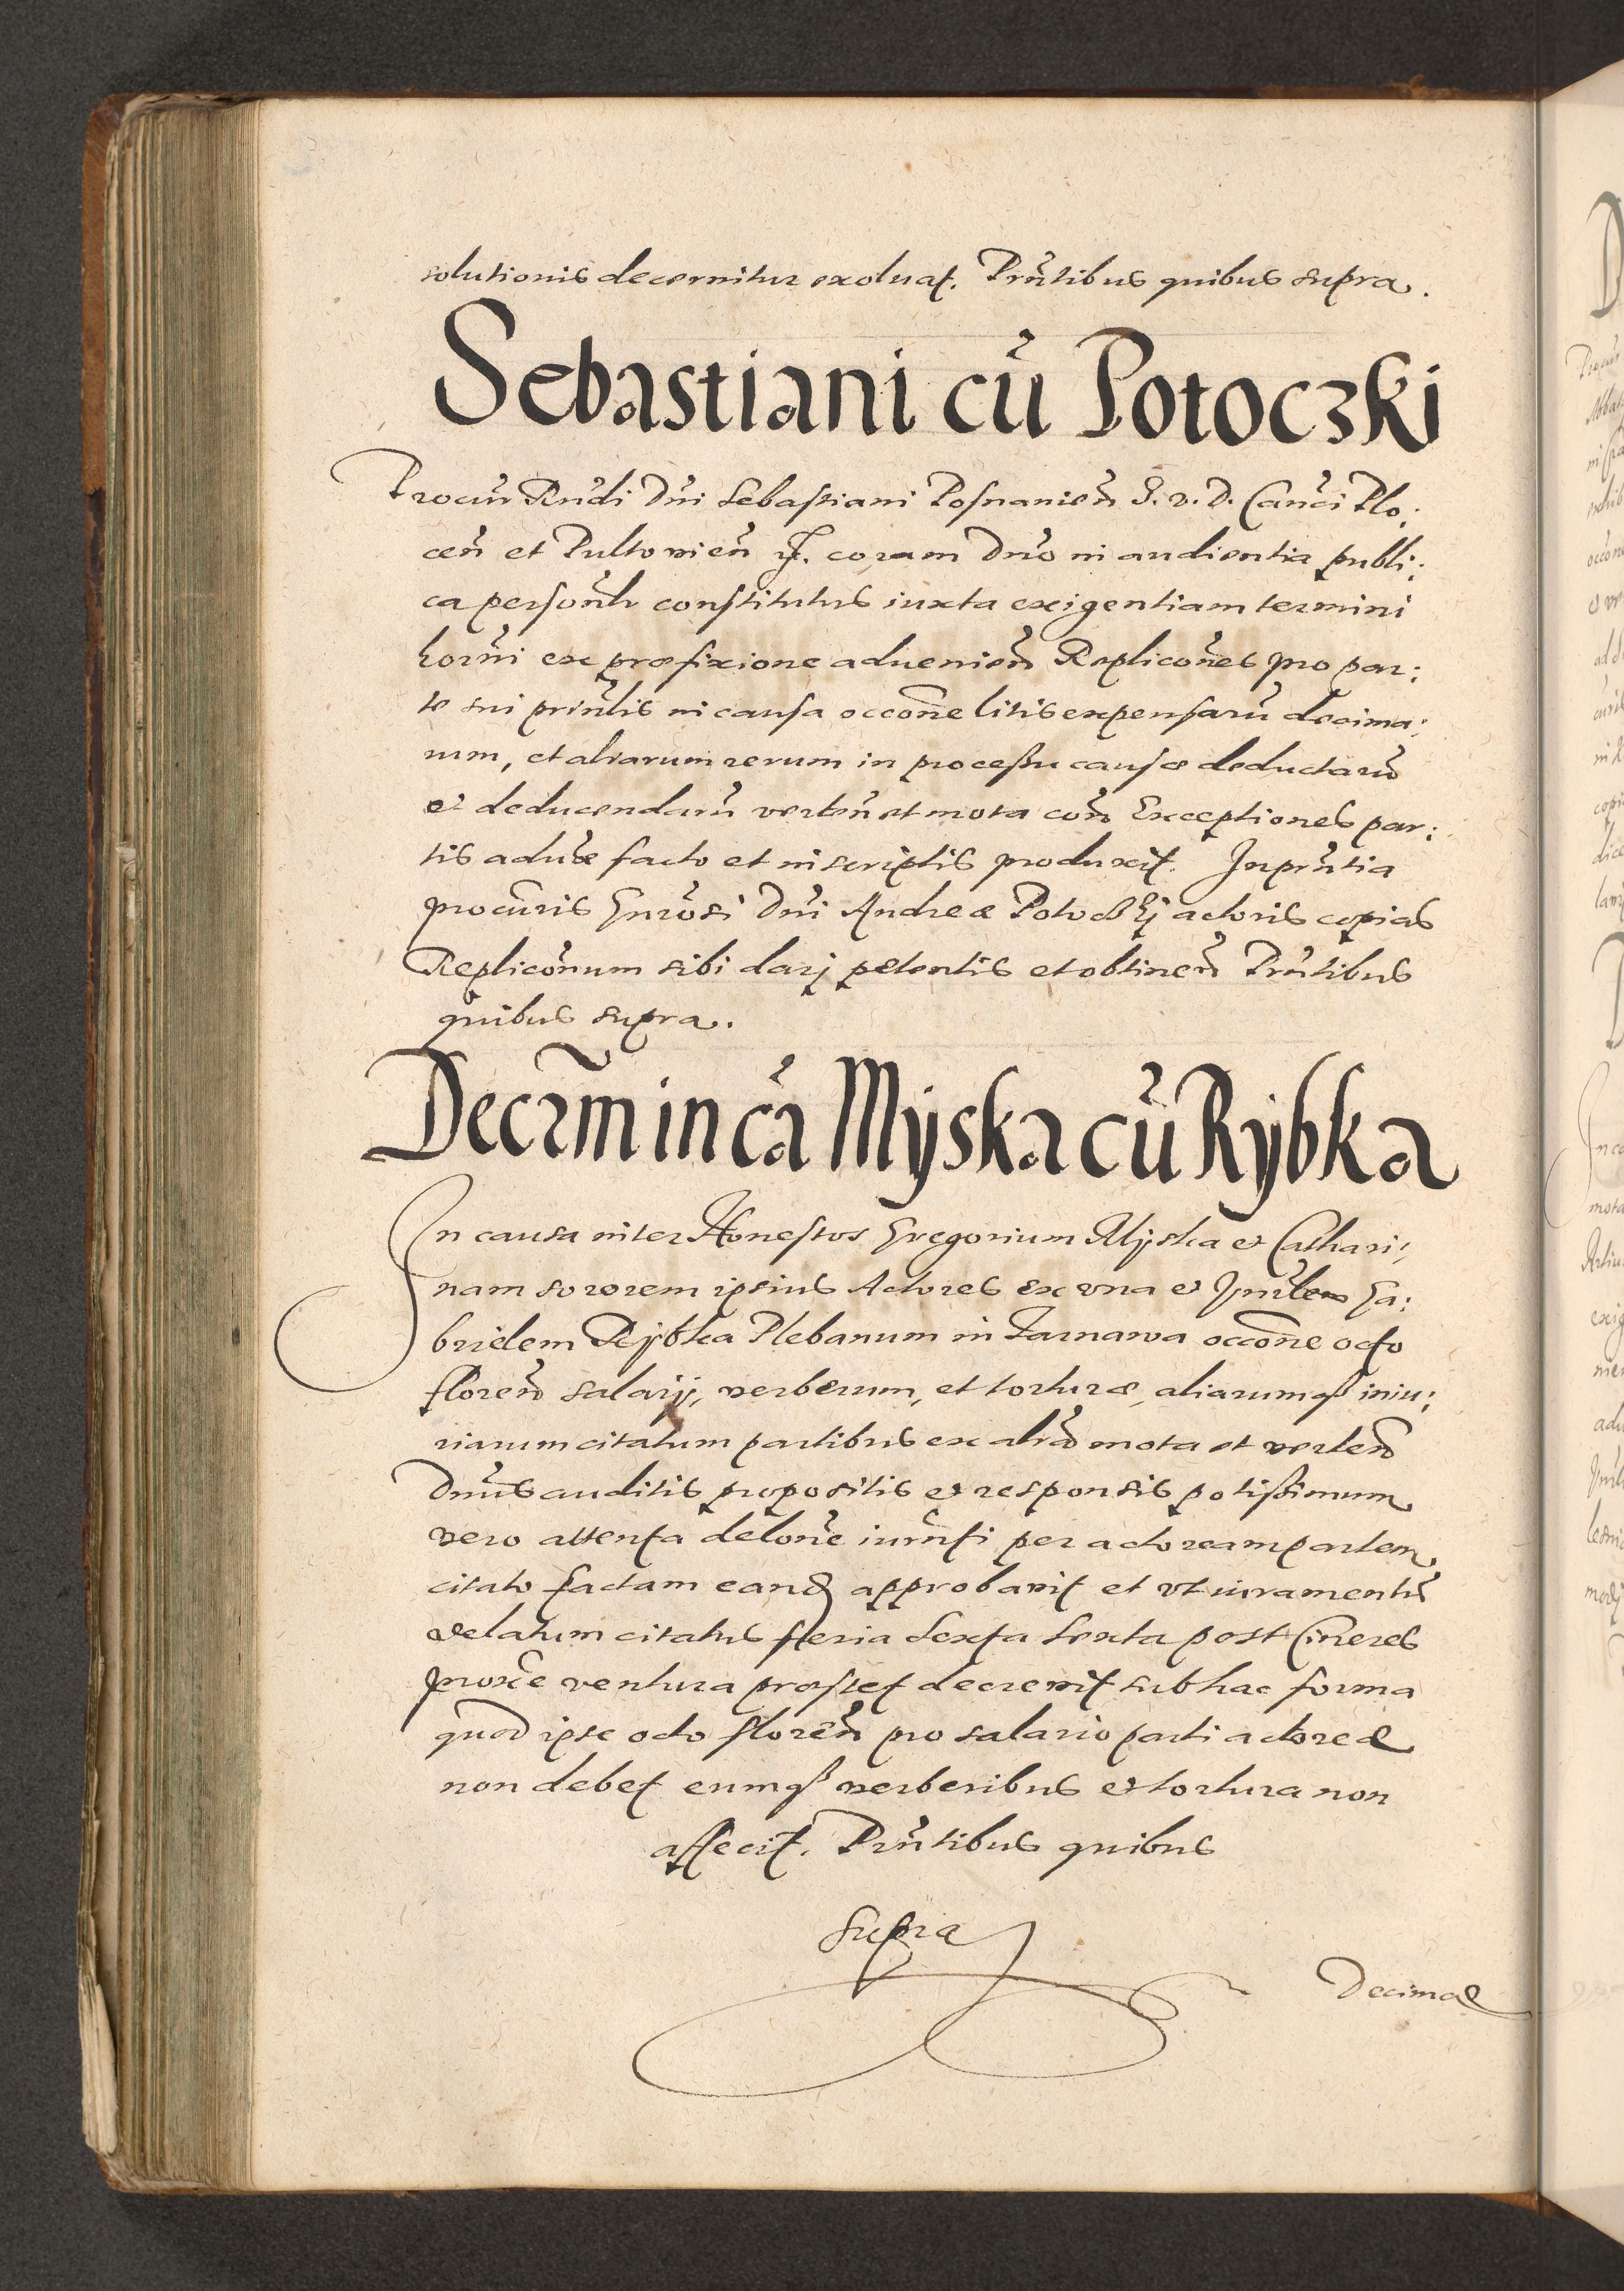 solutionis decernitur exoluat. Prn̄tibus quibus supra.
Sebastiani cū Potoczki
Procūr Rn̄di Dn̄i Sebastiani Posnanien̄ I. v. D. Can̄ci Plo:
cen̄ et Pultovien̄ coram Dn̄o in audientia publi:
ca persōnlr constitutus iuxta exigentiam termini
horn̄i ex præfixione aduenien̄ Replicōnes pro par:
te sui prin̄lis in causa occōne litis expensarū decima:
rum, et aliarum rerum in processu causæ deductarū
et deducendarū verten̄ et mota con̄ Exceptiones par:
tis aduse facto et in scriptis produxit. In prn̄tia
procūris Gn̄rosi Dn̄i Andreæ Potoczkj actoris copias
Replicōnum sibi darj petentis et obtinen̄ Prn̄tibus
quibus supra.
Decrm̄ in cā Mÿska cū Rÿbka
In causa inter Honestos Gregorium Mÿska et Cathari:
nam sororem ipsius Actores ex vna et Hn̄rlem Ga:
brielem Rÿbka Plebanum in Tarnawa occōne octo
floren̄ salarij, verberum, et torturæ, aliarumqß iniu:
riarum citatum partibus ex altrā mota et verten̄
Dn̄us auditis propositis et responsis potissimum
vero attenta delōne iurn̄ti per actoream partem
citato factam eand approbavit et vt iuramentū
delatum citatus feria sexta sexta post Cineres
proxe ventura præstet decrevit sub hac forma
quod ipse octo floren̄ pro salario parti actoreæ
non debet eumqß verberibus et tortura non
affecit. Prn̄tibus quibus
supra
Decimæ